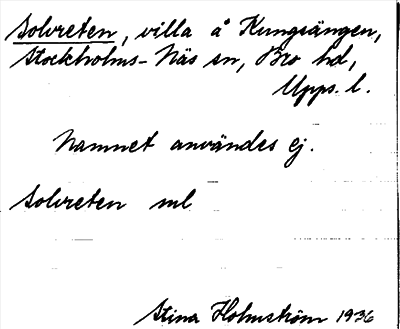 Solvreten, villa å Kungsängen,
Stockholms-Näs sn, Bro hd,
Upps. l.
Namnet användes ej.
Solvreten ml
Stina Holmström 1936